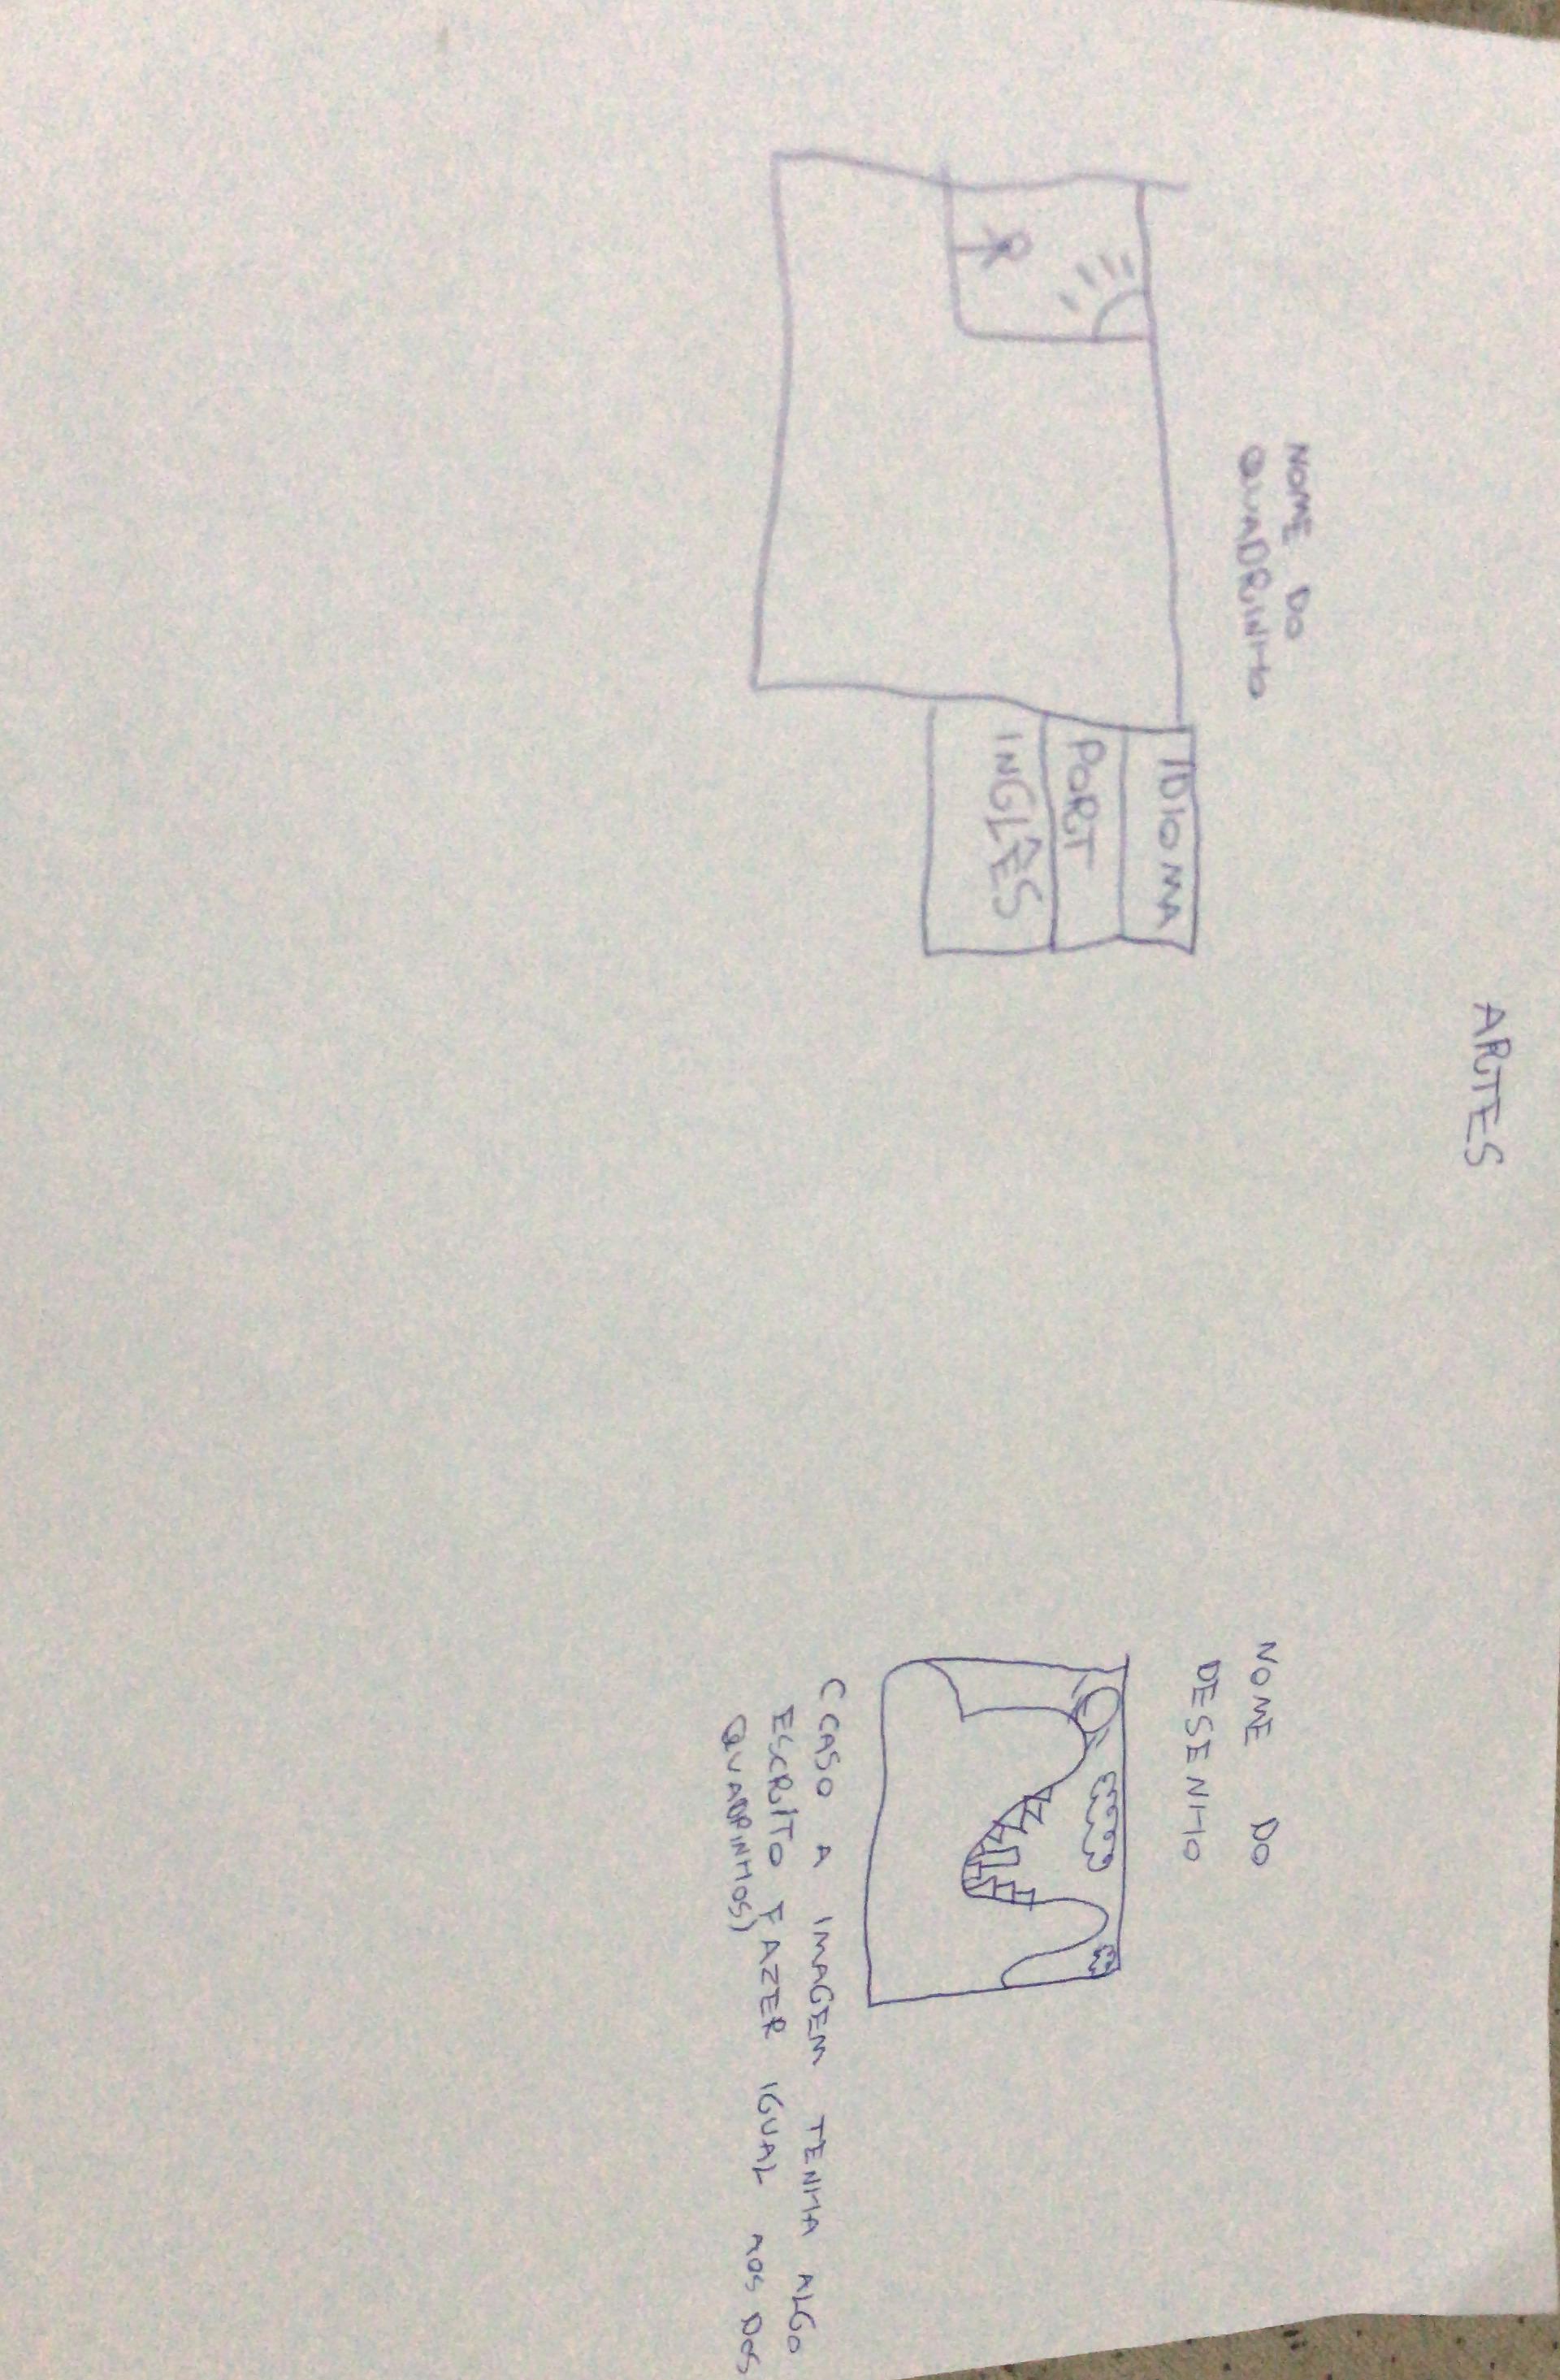 ARTES
NOME DO
QUADRINHO
IDIOMA
PORT
INGLÊS
NOME DO
DESENHO
(CASO A IMAGEM TENHA ALGO
ESCRITO FAZER IGUAL AOS DOS
QUADRINHOS)